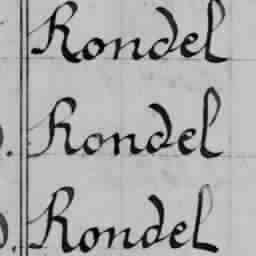 Rondel
Rondel
Rondel